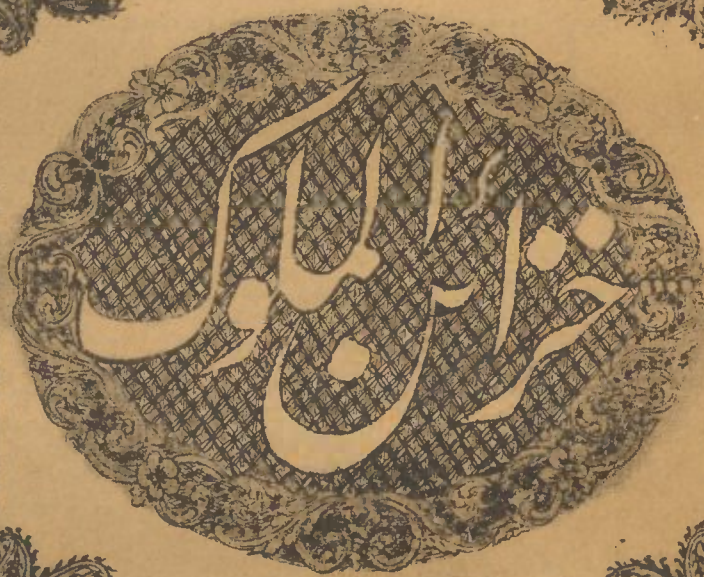 خزائن الملوک